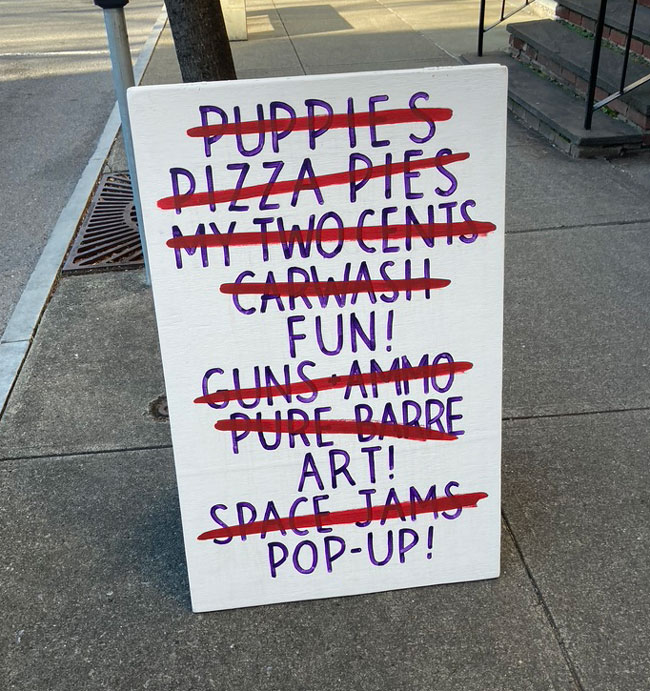 PUPPIES
PIZZA PIES
MY TWO CENTS
CARWASH
FUN!
GUNS + AMMO
PURE BARRE
ART!
SPACE JAMS
POP-UP!